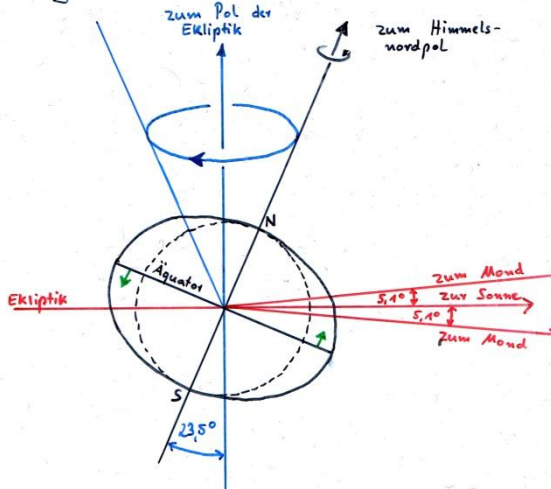 zum Pol der
Ekliptik
zum Himmels-
nordpol
N
Äquator
zum Mond
5,1°
Ekliptik
zur Sonne
5,1°
zum Mond
S
23,5°